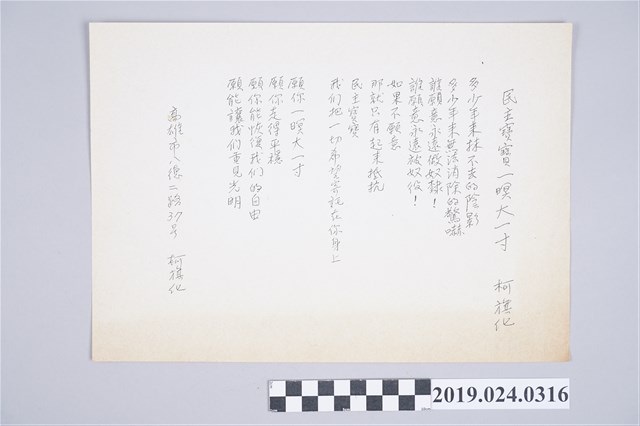 民主寶寶一暝大一寸 柯旗化
多少年來抹不去的陰影
多少年來無法消除的驚嚇
誰願意永遠做奴隸！
誰願意永遠被奴役！
如果不願意
那就只有起來抵抗
民主寶寶
我们把一切希望寄託在你身上
願你一暝大一寸
願你走得平穩
願你能恢復我们的自由
願能讓我们重見光明
高雄市八德二路37号 柯旗化
2019.024.0316